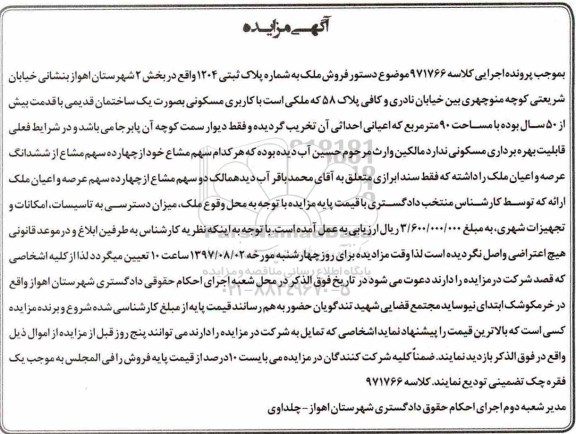 آگهی مزایده
بموجب پرونده اجرایی کلاسه ۹۷۱۷۶۶ موضوع دستور فروش ملک به شماره پلاک ثبتی ۱۲۰۴ واقع در بخش ۲ شهرستان اهواز بنشانی خیابان
شریعتی کوچه منوچهری بین خیابان نادری و کافی پلاک ۵۸ که ملکی است با کاربری مسکونی بصورت یک ساختمان قدیمی با قدمت بیش
از ۵۰ سال بوده با مساحت ۹۰ مترمربع که اعیانی احداثی آن تخریب گردیده و فقط دیوار سمت کوچه آن پابرجا می باشد و در شرایط فعلی
قابلیت بهره برداری مسکونی ندارد مالکین وارث مرحوم حسین آب دیده بوده که هر کدام سهم مشاع خود از چهارده سهم مشاع از ششدانگ
عرصه و اعیان ملک را داشته که فقط سند ابرازی متعلق به آقای محمدباقر آب دیدهمالک دو سهم مشاع از چهارده سهم عرصه و اعیان ملک
ارائه که توسط کارشناس منتخب دادگستری با قیمت پایه مزایده با توجه به محل وقوع ملک، میزان دسترسی به تاسیسات، امکانات و
تجهیزات شهری، به مبلغ ۳/۶۰۰/۰۰۰/۰۰۰ ریال ارزیابی به عمل آمده است. با توجه به اینکه نظریه کارشناس به طرفین ابلاغ و در موعد قانونی
هیچ اعتراضی واصل نگردیده است لذا وقت مزادیده برای روز چهارشنبه مورخه ۱۳۹۷/۰۸/۰۲ ساعت ۱۰ تعیین میگردد لذا از کلیه اشخاصی
که قصد شرکت در مزایده را دارند دعوت می شود در تاریخ فوق الذکر در محل شعبه اجرای احکام حقوقی دادگستری شهرستان اهواز واقع
در خرمکوشک ابتدای نیوساید مجتمع قضایی شهید تندگویان حضور به هم رسانند قیمت پایه از مبلغ کارشناسی شده شروع و برنده مزایده
کسی است که بالاترین قیمت را پیشنهاد نماید اشخاصی که تمایل به شرکت در مزایده را دارند می توانند پنج روز قبل از مزایده از اموال ذیل
واقع در فوق الذکر بازدید نمایند. ضمناً کلیه شرکت کنندگان در مزایده می بایست ۱۰ درصد از قیمت پایه فروش را فی المجلس به موجب یک
فقره چک تضمینی تودیع نمایند. کلاسه ۹۷۱۷۶۶
مدیر شعبه دوم اجرای احکام حقوق دادگستری شهرستان اهواز - چلداوی